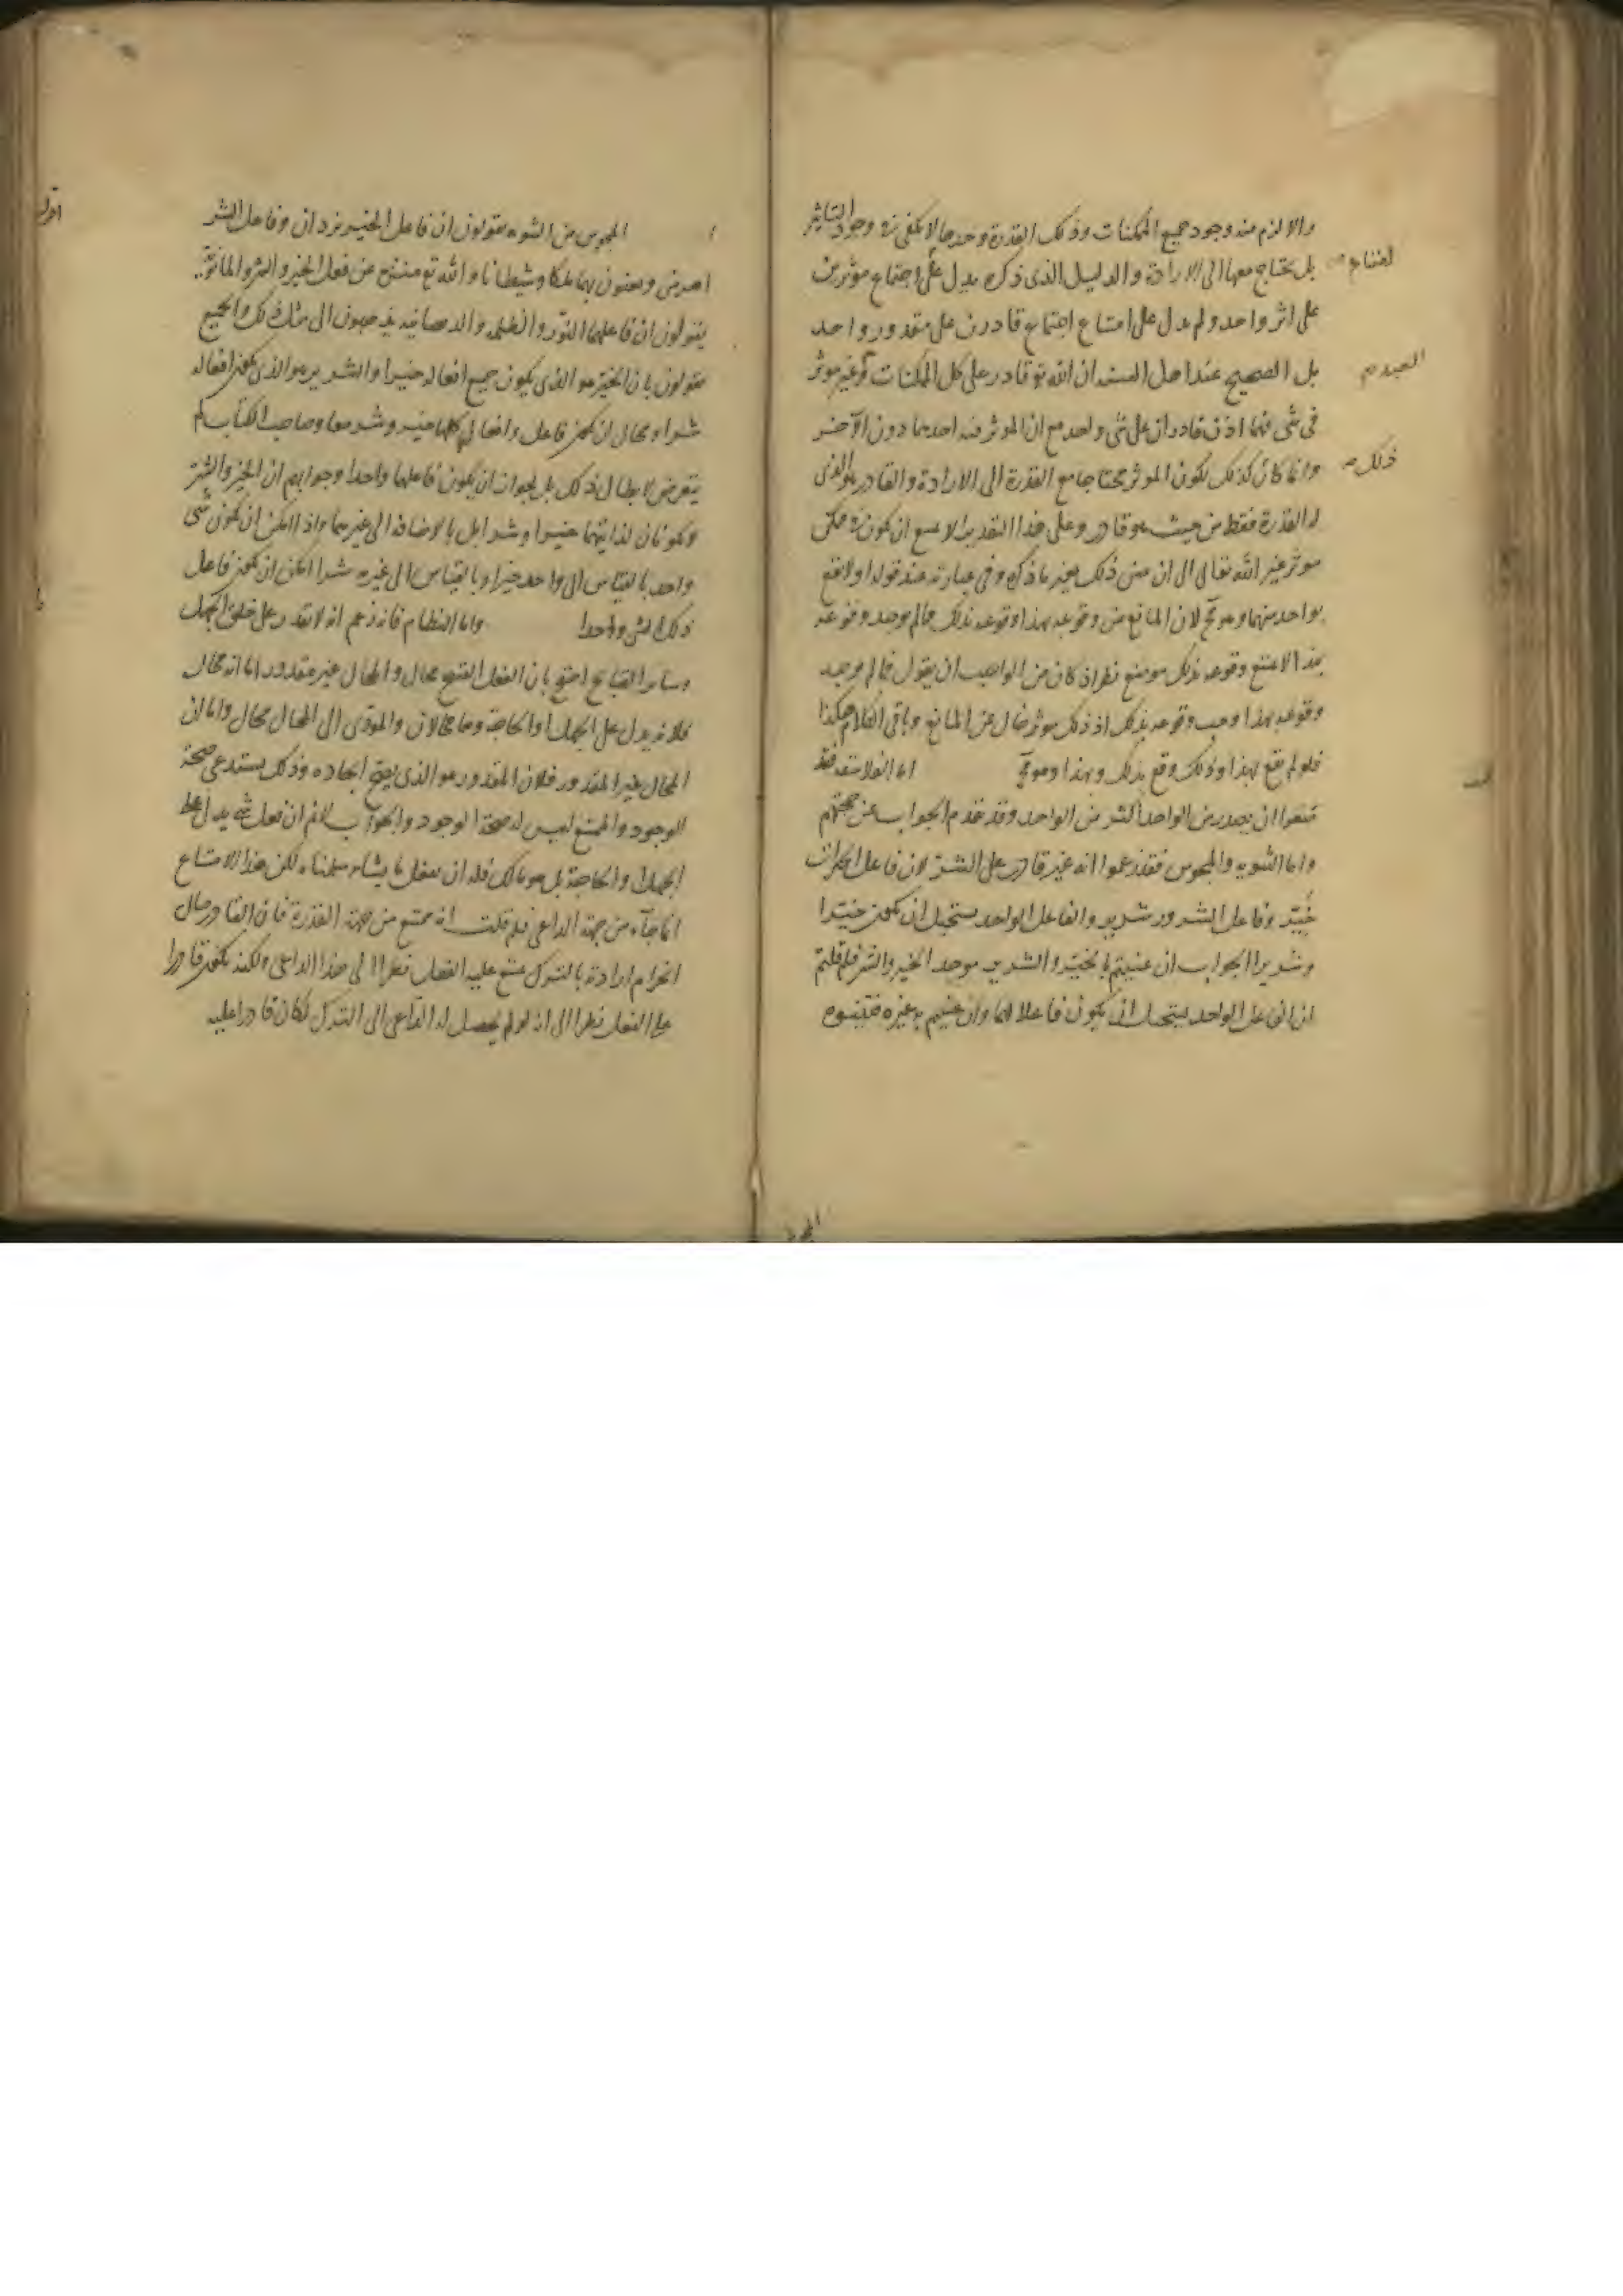 والا لزم منه وجود جميع الممكنات وذلك القدرة وحدها لا يكفى فى وجود التاثير
بل يحتاج معها الى الارادة والدليل الذى ذكره يدل على اجتماع مؤثرين
على اثر واحد ولم يدل على امتناع اجتماع قادرين على مقدور واحد
بل الصحيح عند اهل السنة ان الله تع قادر على كل الممكنات وغير موثر
فى شى فيها اذن قادران على شى واحد مع ان الموثر فيه احدهما دون الآخر
وانما كان كذلك لكون الموثر محتاجا مع القدرة الى الارادة والقادر هو الذى
له القدرة فقط من حيث هو قادر وعلى هذا التقدير لا يمتنع ان يكون فى ممكن
موثر غير الله تعالى الا ان معنى ذلك بغير ما ذكره وفى عبارته عند قوله اولا يقع
بواحد منهما وهو مح لان المانع من وقوعه بهذا وقوعه بذلك فما لم يوجد وقوعه
بهذا لا يمتنع وقوعه بذلك موضع نظر اذ كان من الواجب ان يقول فما لم يوجد
وقوعه بهذا وجب وقوعه بذلك اذ ذلك موثر خال عن المانع وباقى الكلام هكذا
فلو لم يقع بهذا وذلك وقع بذلك وبهذا وهو مح اما الفلاسفة فقد
منعوا ان يصدر من الواحد اكثر من الواحد وقد تقدم الجواب عن حجتهم
واما الثنوية والمجوس فقد زعموا انه غير قادر على الشر لان فاعل الخيرات
خَيِّر وفاعل الشرور شرير والفاعل الواحد يستحيل ان يكون خيّرا
وشريرا الجواب ان عنيتم بالخيّر والشرير موجد الخير والشر فلم قلتم
ان الفاعل الواحد يستحيل ان يكون فاعلا لهما وان عنيتم به غيره فبينوه
ذلك
المجوس من الثنويه يقولون ان فاعل الخير يزدان وفاعل الشر
اهرمن ويعنون بهما ملكا وشيطانا والله تع منزه عن فعل الخير والشر والمانوية
يقولون ان فاعلهما النور والظلمه والديصانيه يذهبون الى مثل ذلك والجميع
يقولون بان الخير هو الذى يكون جميع افعاله خيرا والشرير هو الذى يكون افعاله
شرا ومحال ان يكون فاعل وافعاله كلها خير وشر معا وصاحب الكتاب لم
يتعرض لابطال ذلك بل لجواز ان يكون فاعلهما واحدا وجوابهم ان الخير والشر
لا يكونان لذاتيهما خيرا وشرا بل بالاضافة الى غيرهما واذا امكن ان يكون شى
واحد بالقياس الى واحد خيرا وبالقياس الى غيره شرا امكن ان يكون فاعل
ذلك الشى واحدا واما النظام فانه زعم انه لا يقدر على خلق الجهل
وسائر القبايح احتج بان الفعل القبيح محال والمحال غير مقدور اما انه محال
فلانه يدل على الجهل او الحاجة وهما محالان والمؤدى الى المحال محال واما ان
المحال غير المقدور فلان المقدور هو الذى يصح ايجاده وذلك يستدعى صحة
الوجود والممتنع ليس له صحة الوجود والجواب لا نم ان فعل شى يدل على
الجهل والحاجة بل هو مالك فله ان يفعل ما يشاء سلمناه لكن هذا الامتناع
انما جاء من جهة الداعى فلم قلت انه ممتنع من جهة القدرة فان القادر حال
انجزام ارادته بالترك يمتنع عليه الفعل نظرا الى هذا الداعى ولكنه يكون قادرا
على الفعل نظرا الى انه لو لم يحصل له الداعى الى الترك لكان قادرا عليه